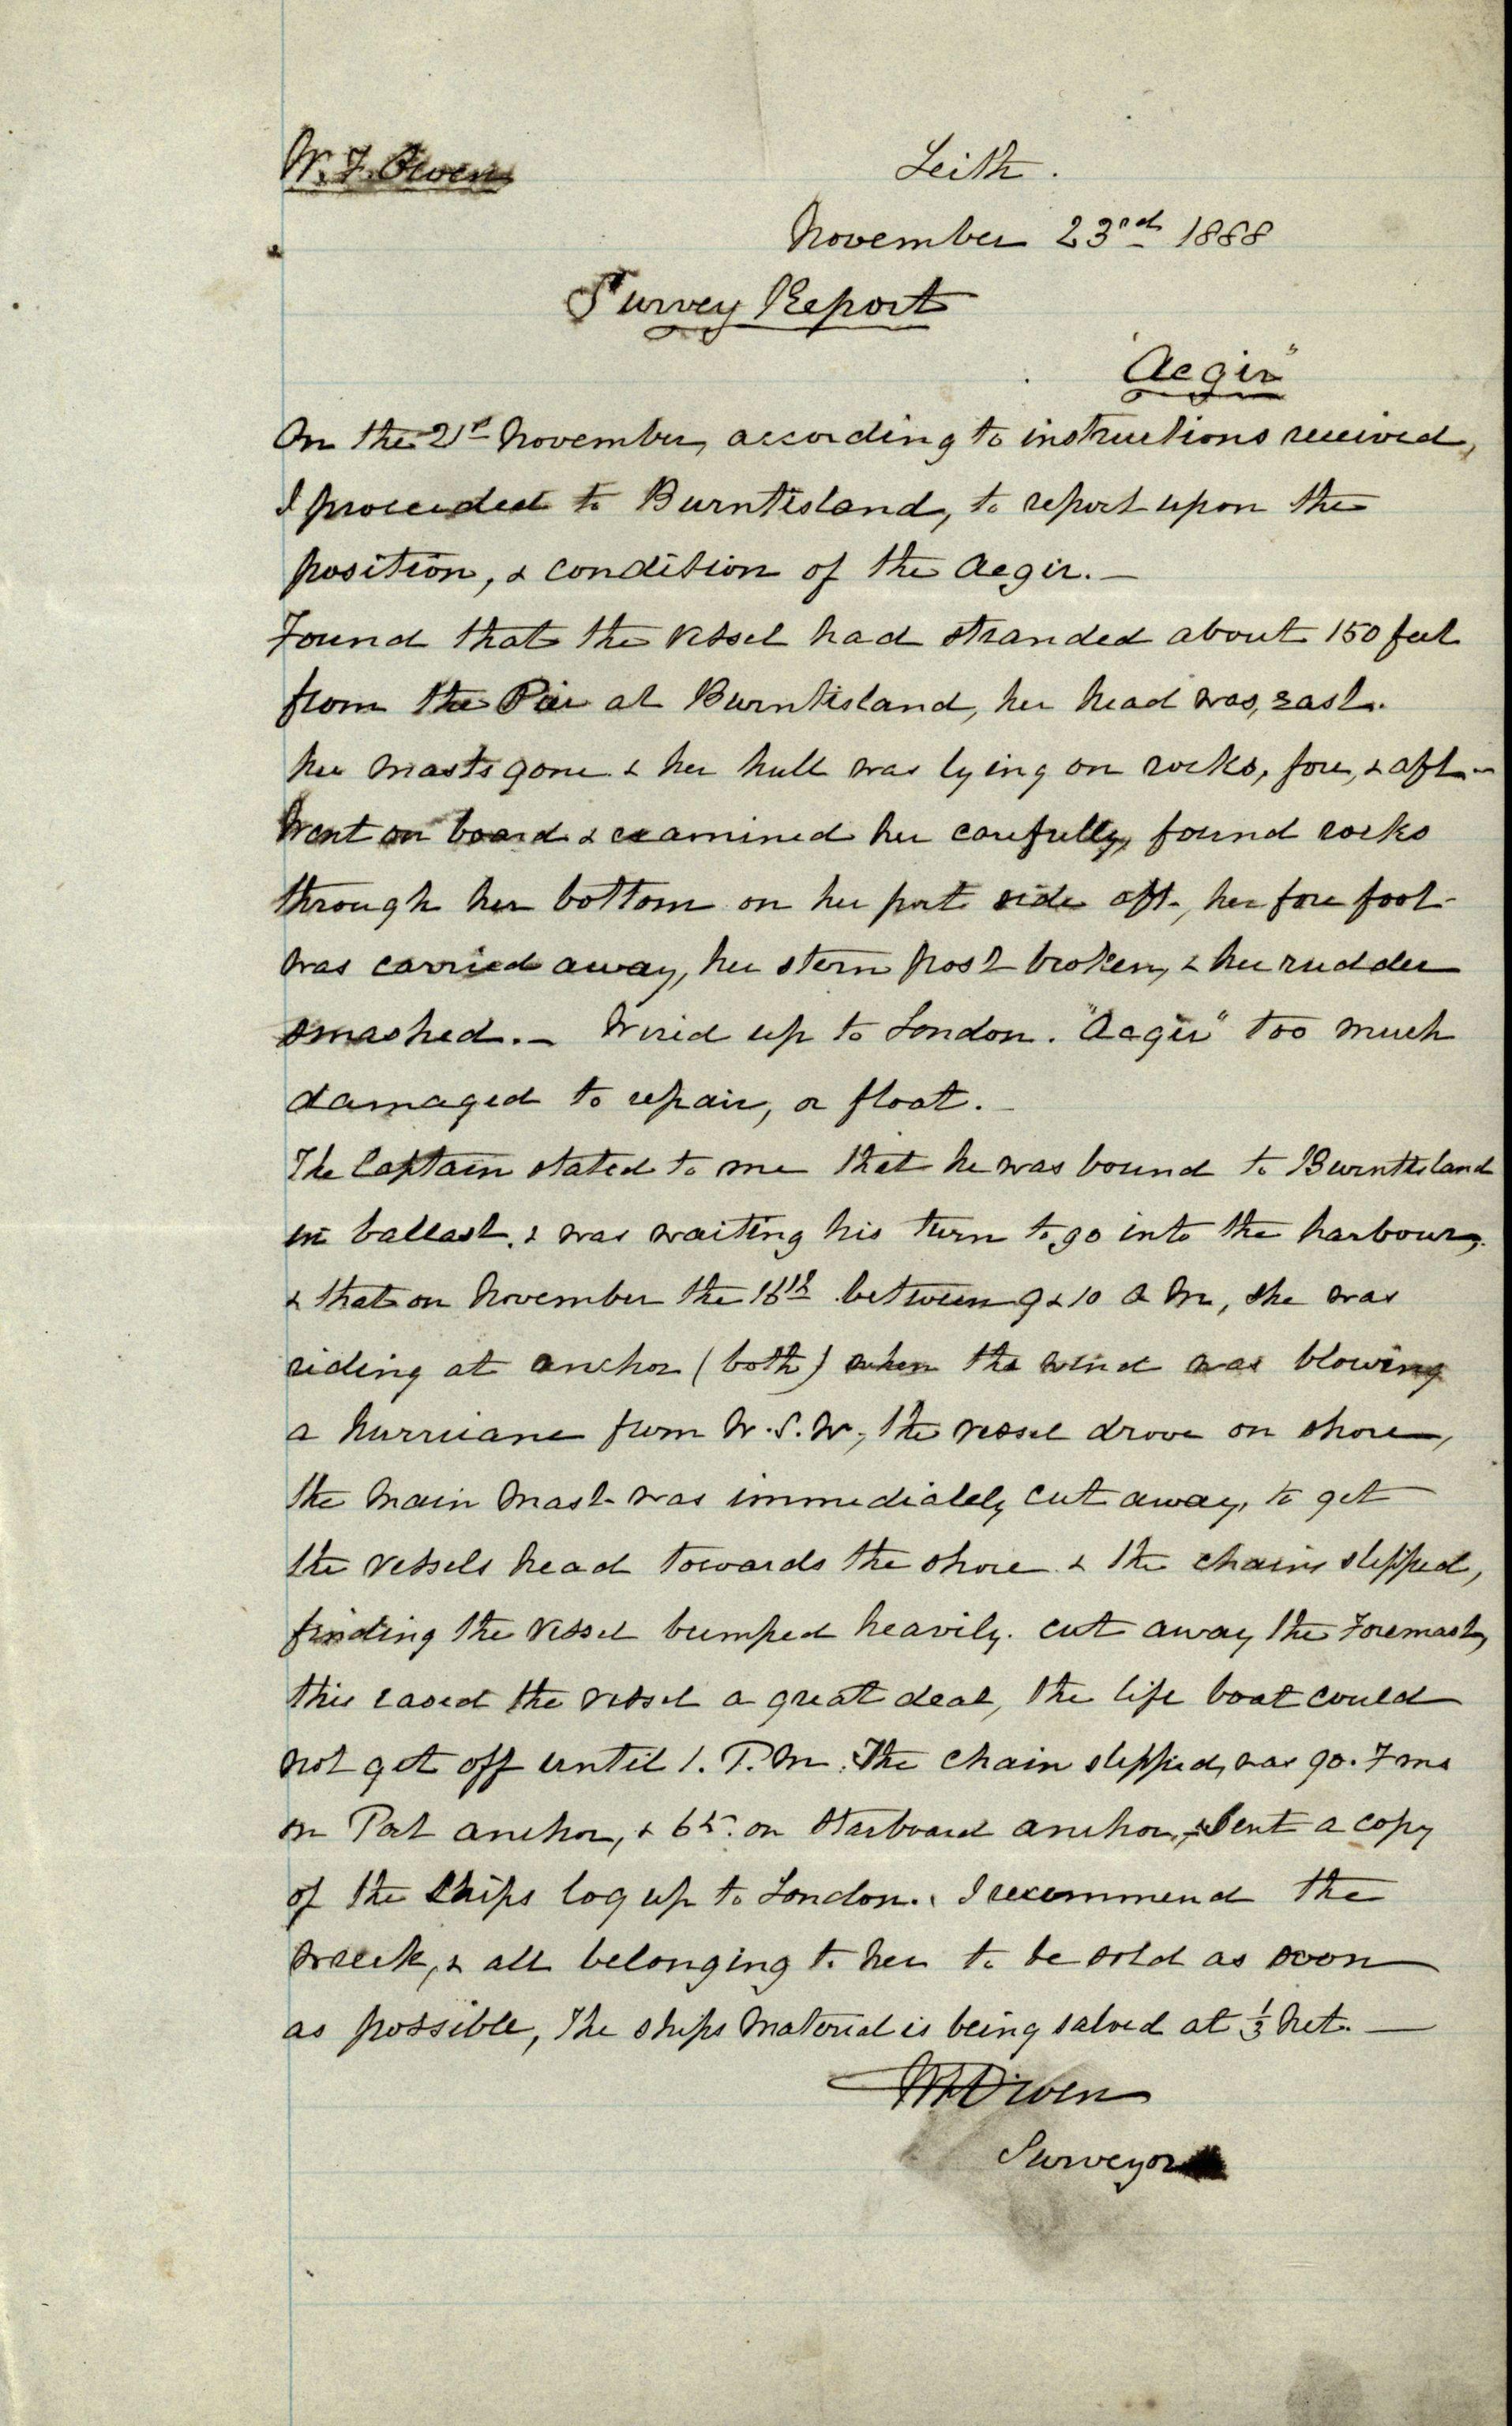 W. F. Owen
Leith.
November 23rd 1888
Survey Report
"Aegir"
On the 21st November, according to instructions received,
I proceeded to Burntisland, to report upon the
position, & condition of the Aegir. —
Found that the vessel had stranded about 150 feet
from the Pier at Burntisland, her head was, east.
her masts gone & her hull was lying on rocks, fore, & aft. —
Went on board & examined her carefully, found rocks
through her bottom on her port side aft, her fore foot
was carried away, her stern post broken, & her rudder
smashed. — Wired up to London. "Aegir" too much
damaged to repair, or float. —
The Captain stated to me that he was bound to Burntisland
in ballast, & was waiting his turn to go into the harbour,
& that on November the 16th between 9 & 10 A M, she was
riding at anchor (both) when the wind was blowing
a hurricane from W.S.W, the vessel drove on shore,
the main mast was immediately cut away, to get
the vessels head towards the shore & the chains slipped,
finding the vessel bumped heavily. cut away the Foremast,
this eased the vessel a great deal, the life boat could
not get off until 1. P.M. The chain slipped, was 90. Fms
on Port anchor, & 65. on Starboard anchor, Sent a copy
of the ships log up to London. I recommend the
wreck, & all belonging to her to be sold as soon
as possible, The ships material is being salved at ⅓ net. —
W F Owen
Surveyor